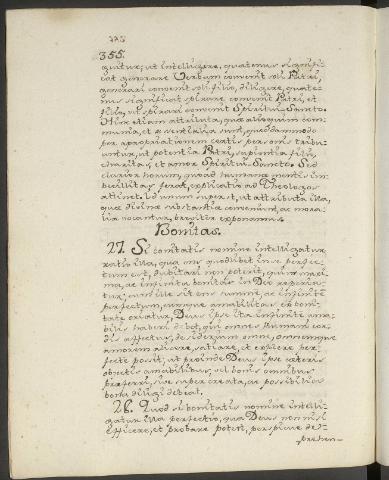 355.
guitur; ut intelligere, quatenus signifi-
cat generare Verbum convenit soli Patri,
generari convenit soli filio, diligere, quate-
nus significat spirare convenit Patri, et
filio, ut spirari convenit Spiritui Sancto.
Hinc etiam attributa, quae alioquin com-
munia, et essentialia sunt, quodammodo
per appropriationem certis personis tribu-
untur, ut potentia Patri, sapientia filio,
charitas, et amor Spiritui Sancto. Sed
clarior horum, quoad humanae mentis im-
becillitas ferat, explicatio ad Theologos
attinet. Id unum superest, ut attributa illa,
quae divinae substantiae conveniunt, ac mora-
lia vocantur, breviter exponamus.
Bonitas.
27. Si bonitatis nomine intelligatur
ratio illa, qua ens quodlibet in se perfec-
tum est, dubitari non poterit, quin maxi-
ma, ac infinita bonitas in Deo reperia-
tur; cum ille sit ens summe, ac infinite
perfectum, cumque amabilitas ex boni-
tate oriatur, Deus ipse ita infinite ama-
bilis haberi debet, qui omne humani cor-
dis affectus, desiderium omne, omnemque
amorem alicere, satiare, et explere per-
fecte possit, ut proinde Deus ipse caeteris
objectis amabilibus, sed bonis omnibus
praeferri, sive super creata, ac possibilia
bona diligi debeat.
28. Quod si bonitatis nomine intelli-
gatur illa perfectio, qua Deus non nisi
efficere, et probare potest, perspicue de-
prehen-